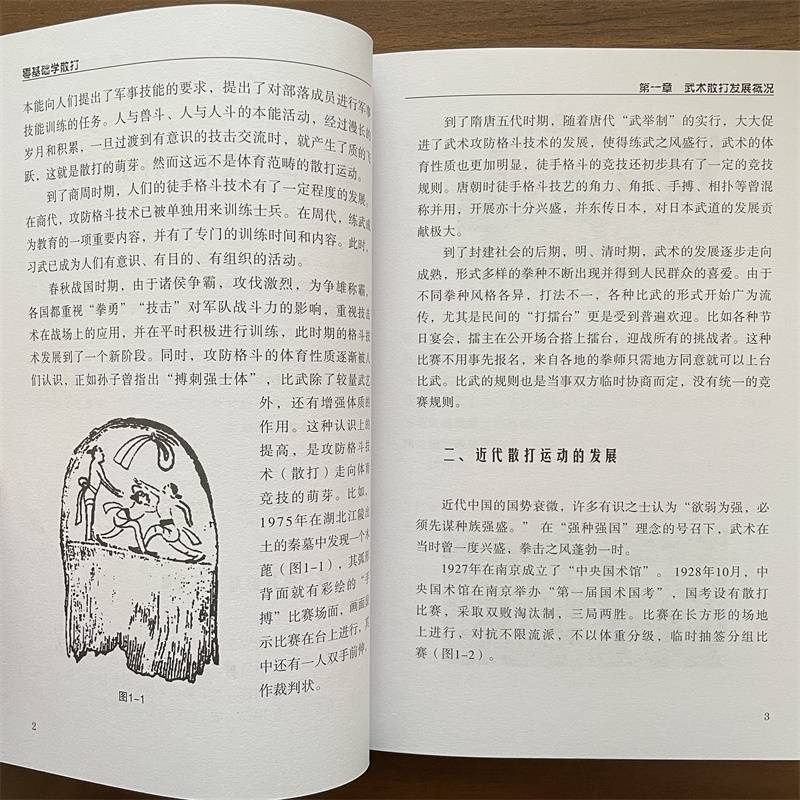 零基础学散打
本能向人们提出了军事技能的要求，提出了对部落成员进行军事
技能训练的任务。人与兽斗、人与人斗的本能活动，经过漫长的
岁月和积累，一旦过渡到有意识的技击交流时，就产生了质的飞
跃，这就是散打的萌芽。然而这远不是体育范畴的散打运动。
到了商周时期，人们的徒手格斗技术有了一定程度的发展。
在商代，攻防格斗技术已被单独用来训练士兵。在周代，练武成
为教育的一项重要内容，并有了专门的训练时间和内容。此时，
习武已成为人们有意识、有目的、有组织的活动。
春秋战国时期，由于诸侯争霸，攻伐激烈，为争雄称霸，
各国都重视“拳勇”“技击”对军队战斗力的影响，重视技击
术在战场上的应用，并在平时积极进行训练，此时期的格斗技
术发展到了一个新阶段。同时，攻防格斗的体育性质逐渐被人
们认识，正如孙子曾指出“搏刺强士体”，比武除了较量武艺
外，还有增强体质的
作用。这种认识上的
提高，是攻防格斗技
术（散打）走向体育
竞技的萌芽。比如，
1975年在湖北江陵出
土的秦墓中发现一个木
蓖（图1-1），其弧形
背面就有彩绘的“手
搏”比赛场面，画面显
示比赛在台上进行，其
中还有一人双手前伸，
作裁判状。
图1-1
2
第一章　武术散打发展概况
到了隋唐五代时期，随着唐代“武举制”的实行，大大促
进了武术攻防格斗技术的发展，使得练武之风盛行，武术的体
育性质也更加明显，徒手格斗的竞技还初步具有了一定的竞技
规则。唐朝时徒手格斗技艺的角力、角抵、手搏、相扑等曾混
称并用，开展亦十分兴盛，并东传日本，对日本武道的发展贡
献极大。
到了封建社会的后期，明、清时期，武术的发展逐步走向
成熟，形式多样的拳种不断出现并得到人民群众的喜爱。由于
不同拳种风格各异，打法不一，各种比武的形式开始广为流
传，尤其是民间的“打擂台”更是受到普遍欢迎。比如各种节
日宴会，擂主在公开场合搭上擂台，迎战所有的挑战者。这种
比赛不用事先报名，来自各地的拳师只需地方同意就可以上台
比武。比武的规则也是当事双方临时协商而定，没有统一的竞
赛规则。
二、近代散打运动的发展
近代中国的国势衰微，许多有识之士认为“欲弱为强，必
须先谋种族强盛。”在“强种强国”理念的号召下，武术在
当时曾一度兴盛，拳击之风蓬勃一时。
1927年在南京成立了“中央国术馆”。1928年10月，中
央国术馆在南京举办“第一届国术国考”，国考设有散打
比赛，采取双败淘汰制，三局两胜。比赛在长方形的场地
上进行，对抗不限流派，不以体重分级，临时抽签分组比
赛（图1-2）。
3